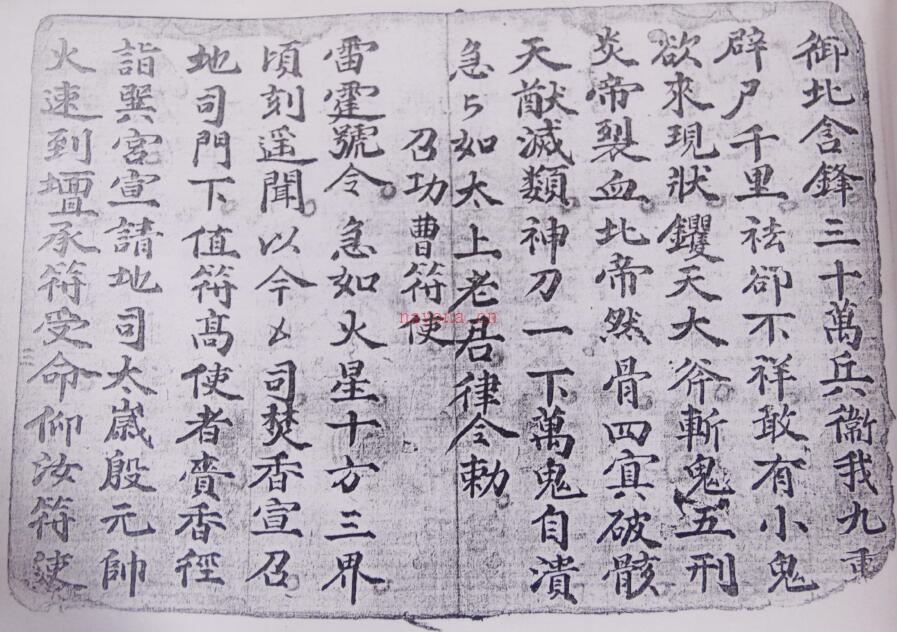 御北含鋒三十萬兵衞我九重
辟尸千里袪郤不祥敢有小鬼
欲來現狀钁天大斧斬鬼五刑
炎帝裂血北帝然骨四寘破骸
天猷滅類神刀一下萬鬼自潰
急々如太上老君律令勅
召功曹符使
雷霆號令急如火星十方三界
頃刻遥聞以今司焚香宣召
地司門下值符髙使者賫香徑
詣巽宮宣請地司太歲殷元帥
火速到壇承符受命仰汝符使
nayona.cn